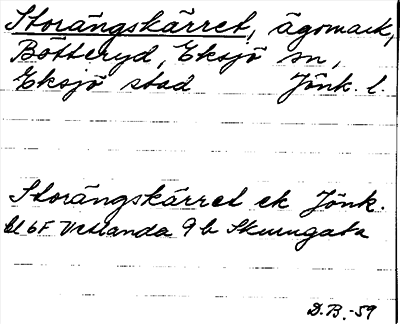 Storängskärret, ägomark,
Bötteryd, Eksjö sn,
Eksjö stad Jönk. l.
Storängskärret ek Jönk.
bl 6F Vetlanda 9 b Skurugata
D.B.-59